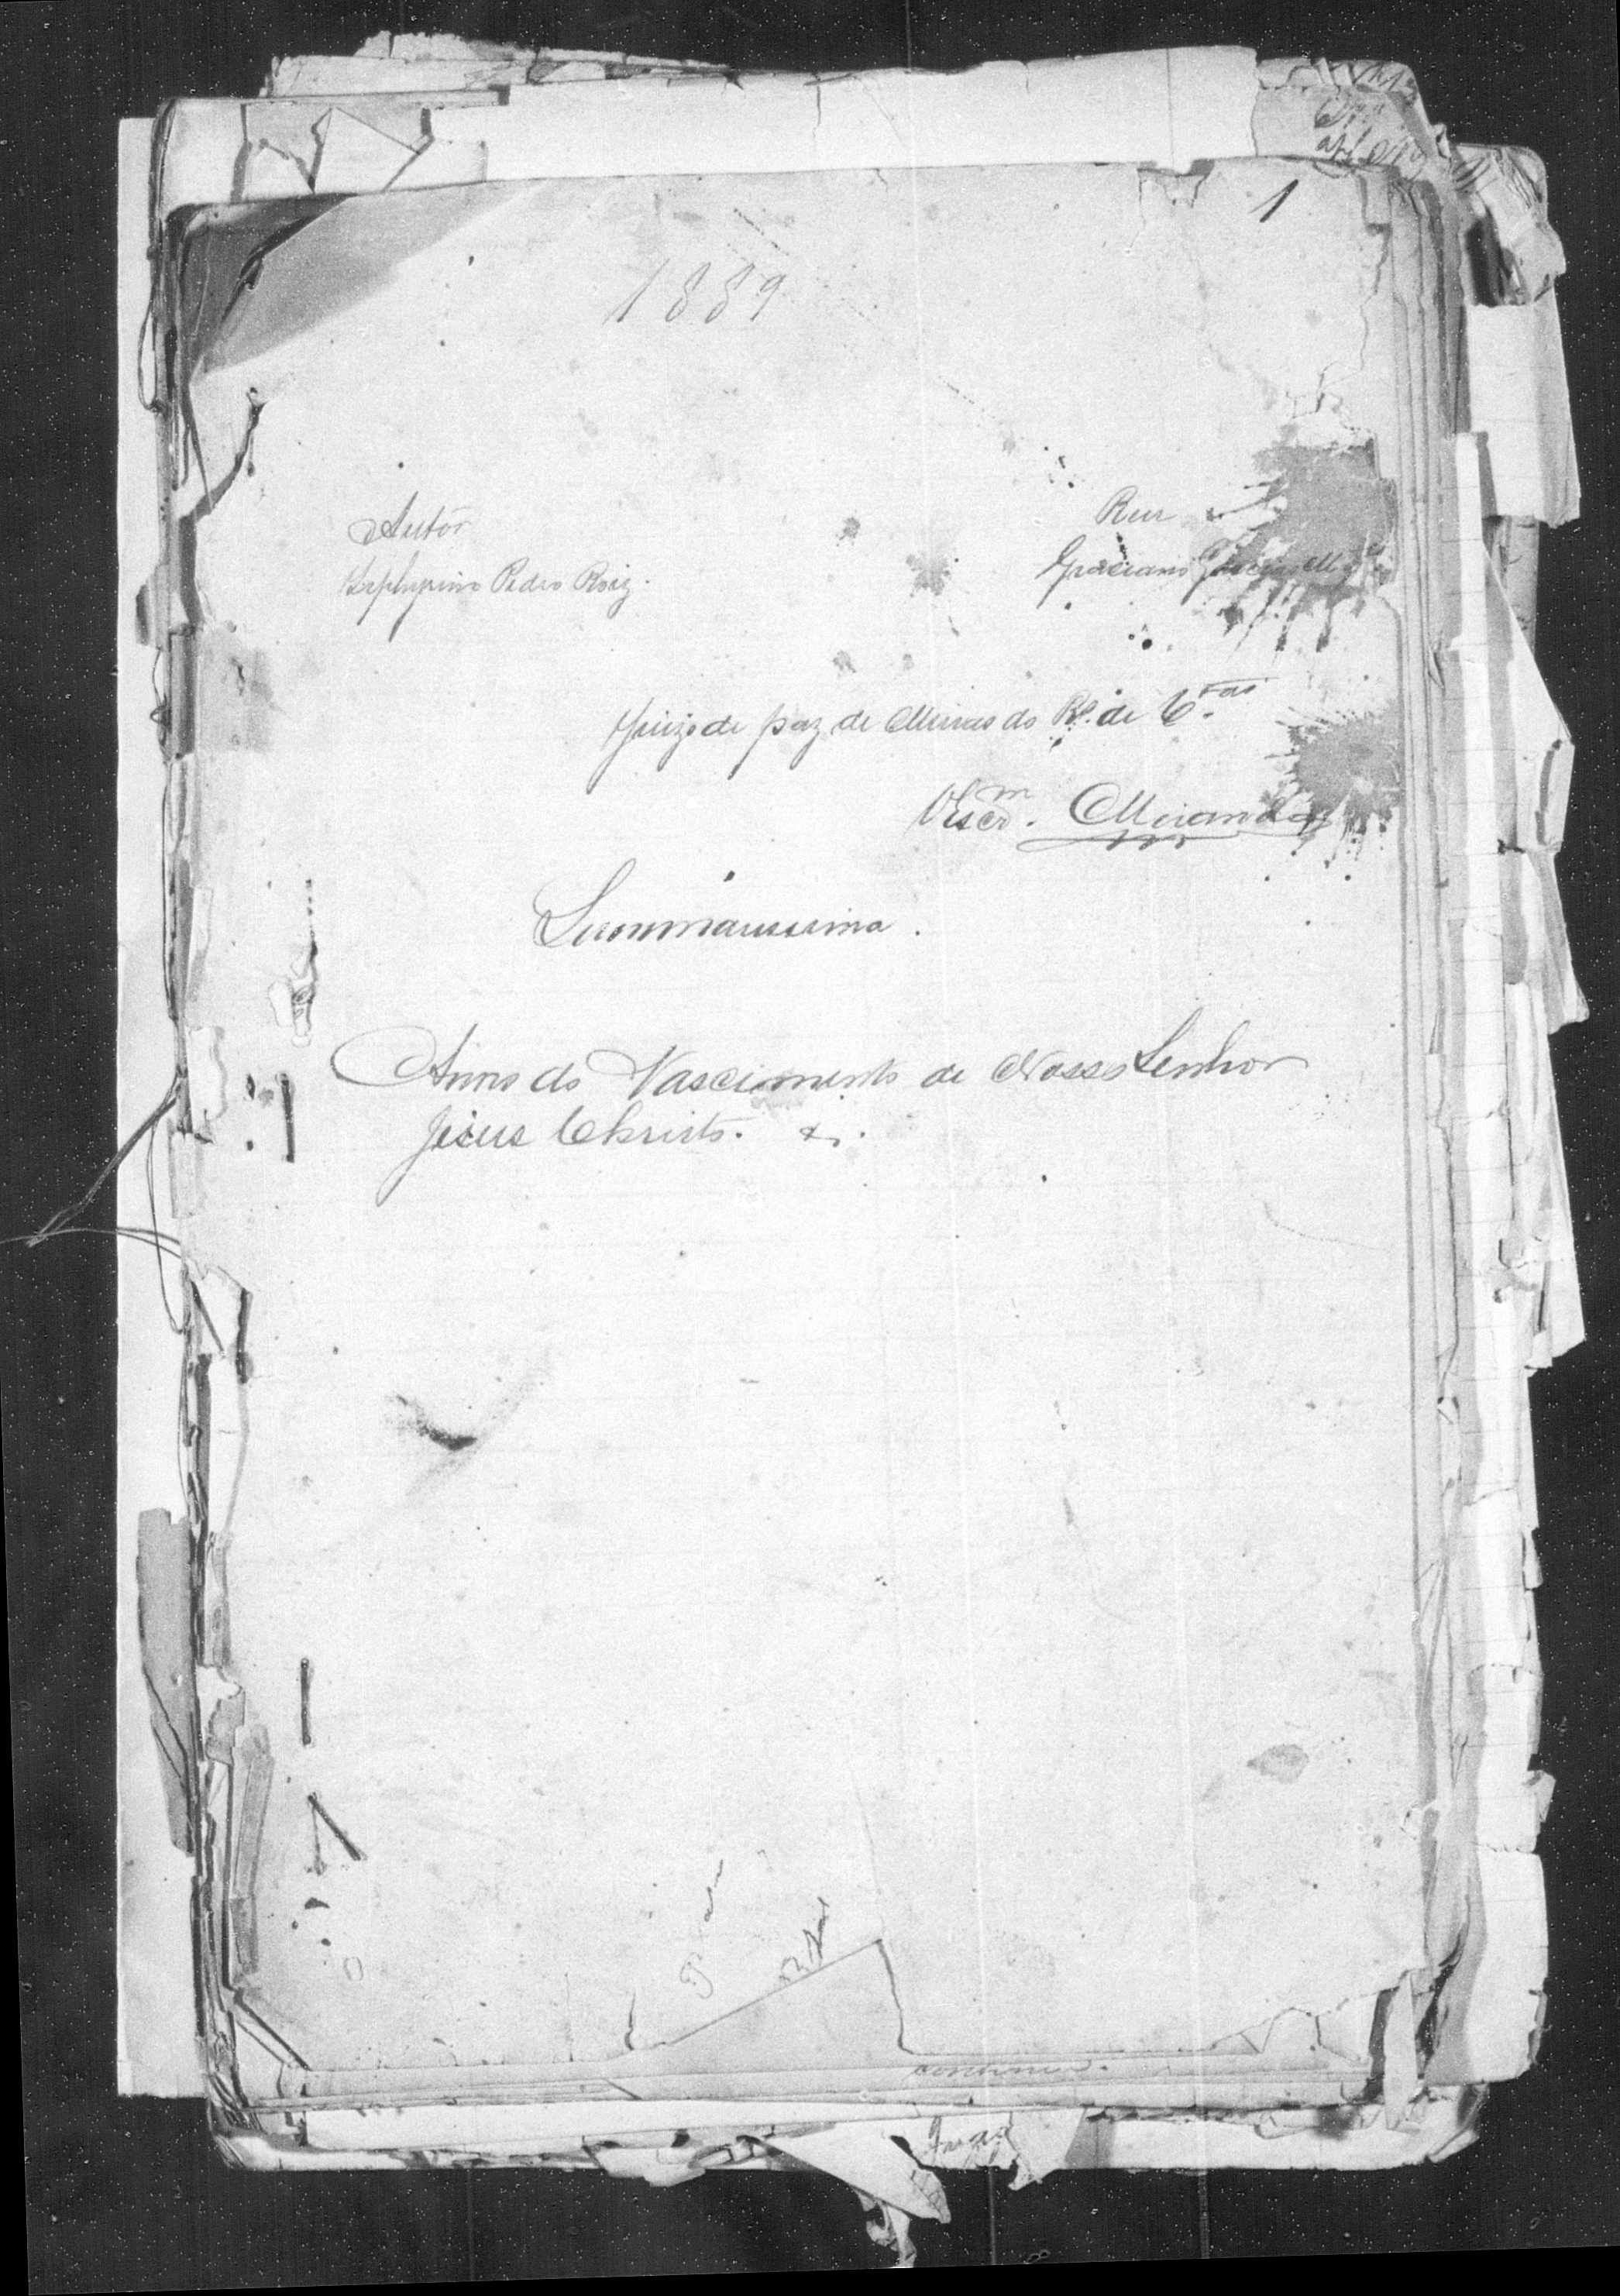 1
1889
Autor
Reu
Zephyrino Pedro Roiz.
Graciano
Juizo de paz de Minas do Rº. de C.tas
O Escrm. Miranda
Summarissima.
Anno do Nascimento de Nosso Senhor
Jesus Christo. &.